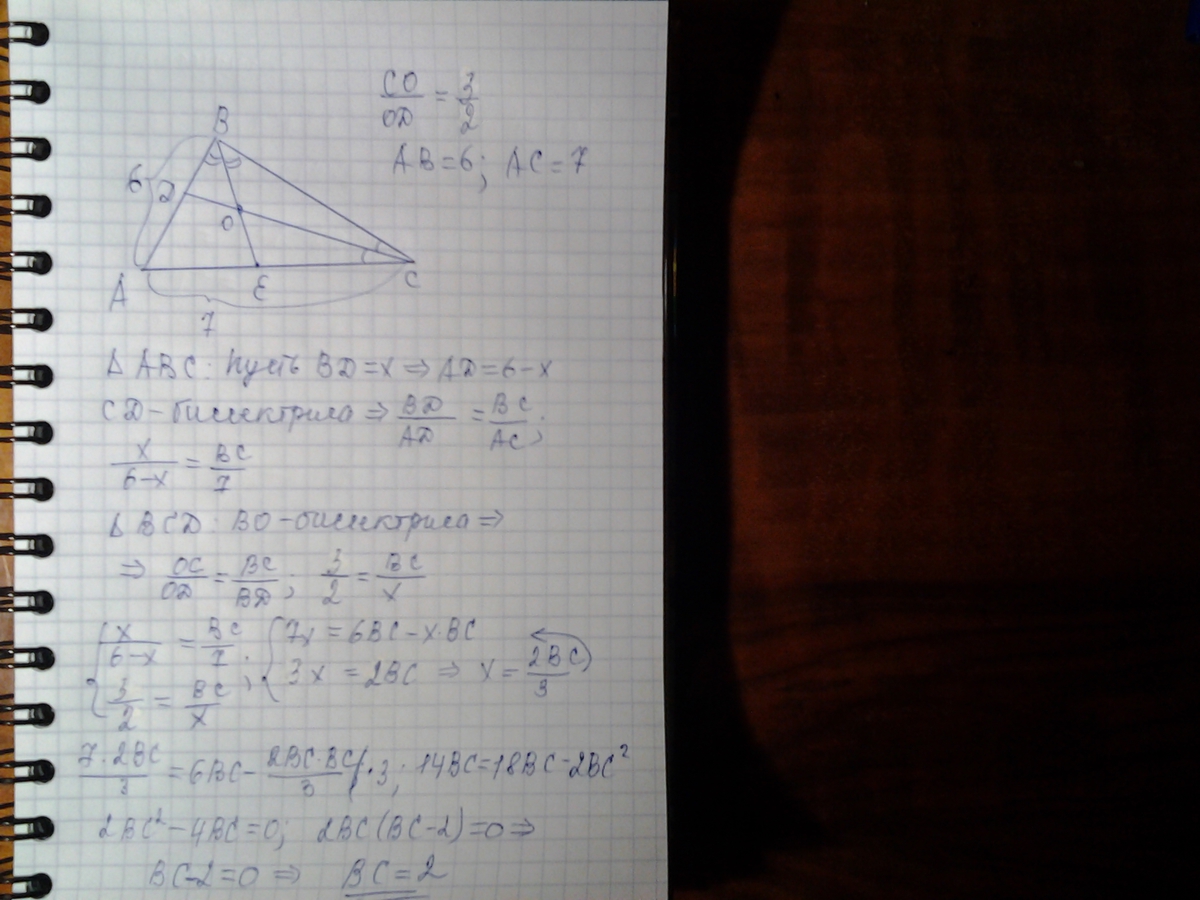 CO/OD = 3/2
AB=6; AC=7
B
6
D
O
A
E
C
7
Δ ABC: Пусть BD=x ⇒ AD=6-x
CD-биссектриса ⇒ BD/AD = BC/AC;
x/6-x = BC/7
Δ BCD: BO-биссектриса ⇒
⇒ OC/OD = BC/BD; 3/2 = BC/x
{ x/6-x = BC/7; { 7x = 6BC-x·BC
3/2 = BC/x 3x = 2BC ⇒ x = 2BC/3
7·2BC/3 = 6BC - 2BC·BC/3 |·3; 14BC=18BC-2BC²
2BC²-4BC=0; 2BC(BC-2)=0 ⇒
BC-2=0 ⇒ BC=2